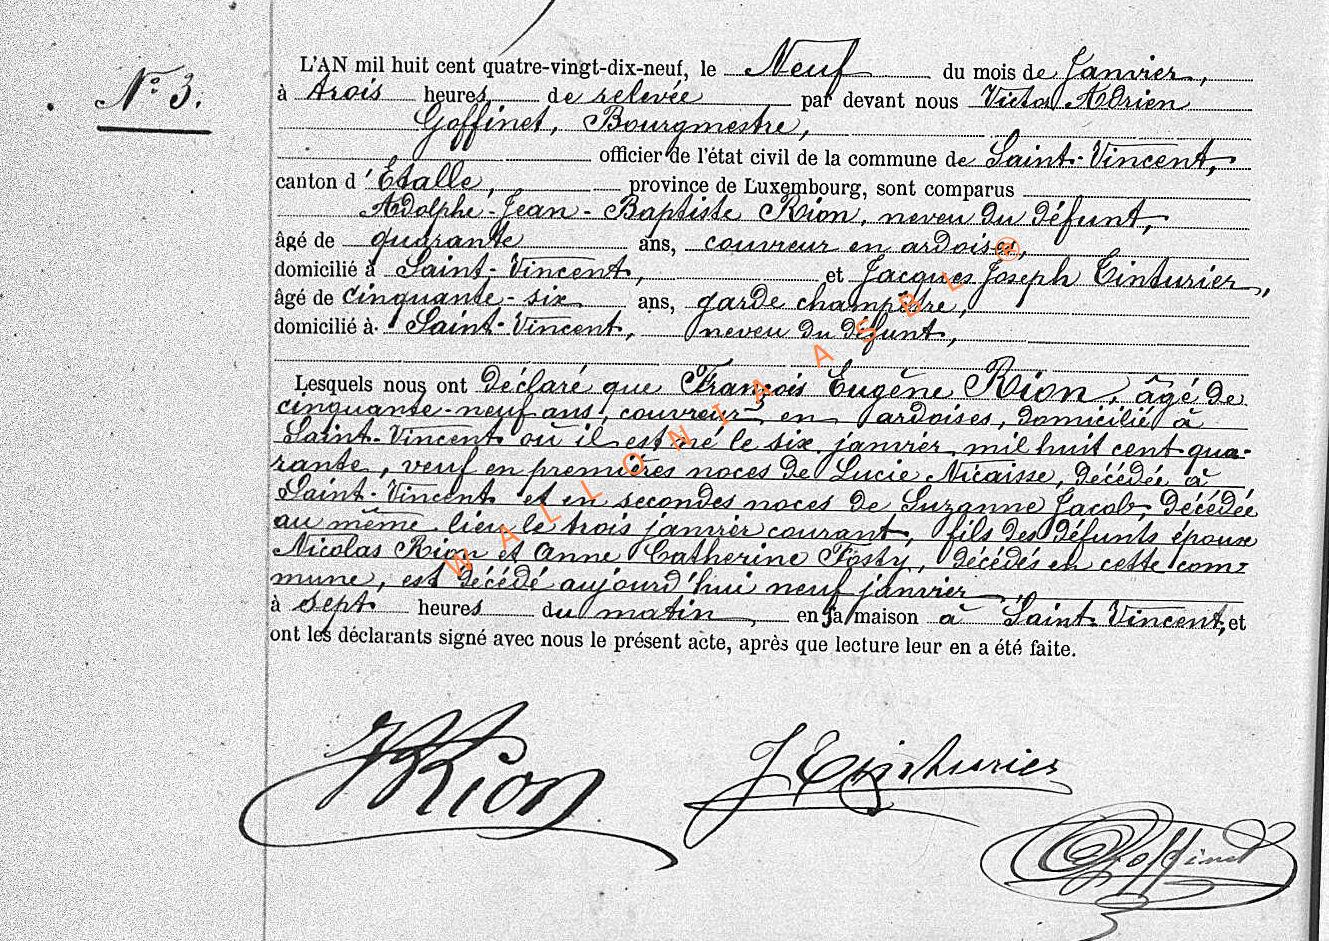 N° 3.
L'AN mil huit cent quatre-vingt-dix-neuf, le Neuf du mois de Janvier,
à trois heures de relevée par devant nous Victor Adrien
Goffinet, Bourgmestre,
officier de l'état civil de la commune de Saint-Vincent,
canton d'Etalle, province de Luxembourg, sont comparus
Adolphe-Jean-Baptiste Rion, neveu du défunt,
âgé de quarante ans, couvreur en ardoises,
domicilié à Saint-Vincent, et Jacques Joseph Tinturier,
âgé de cinquante-six ans, garde champêtre,
domicilié à Saint-Vincent, neveu du défunt,
Lesquels nous ont déclaré que François Eugène Rion, âgé de
cinquante-neuf ans, couvreur en ardoises, domicilié à
Saint-Vincent où il est né le six janvier mil huit cent qua-
rante, veuf en premières noces de Lucie Nicaisse, décédée à
Saint-Vincent et en secondes noces de Suzanne Jacob, décédée
au même lieu le trois janvier courant, fils des défunts époux
Nicolas Rion et Anne Catherine Fosty, décédés en cette com-
mune, est décédé aujourd'hui neuf janvier
à sept heures du matin, en sa maison à Saint-Vincent, et
ont les déclarants signé avec nous le présent acte, après que lecture leur en a été faite.
Rion
J Tinturier
Goffinet
WALLONIA ASBL ®